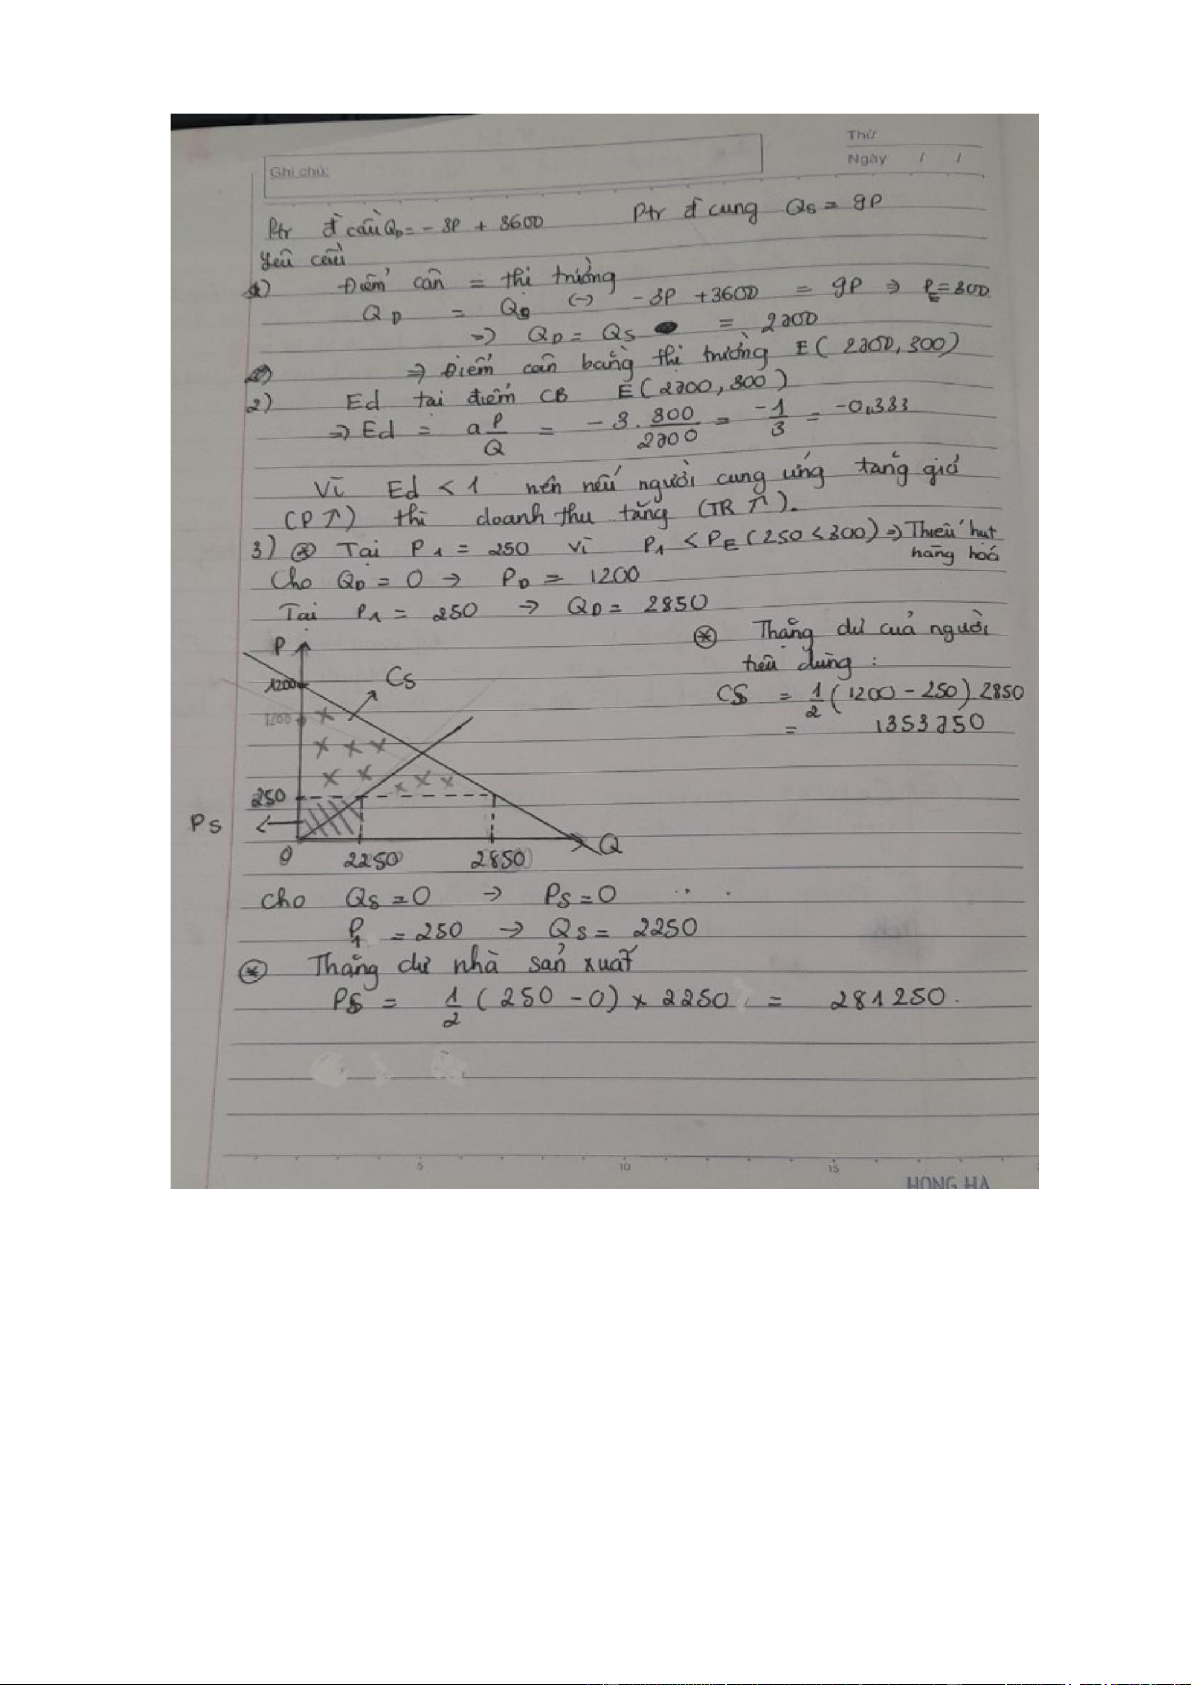 Thứ
Ghi chú:
Ngày / /
Ptr đ cầu Q_D = - 3P + 3600 Ptr đ cung Q_S = 9P
Yêu cầu
1) Điểm cân = thị trường
Q_D = Q_S (-) -3P + 3600 = 9P => P_E = 300
=> Q_D = Q_S = 2700
=> Điểm cân bằng thị trường E ( 2700, 300)
2) Ed tại điểm CB E ( 2700, 300 )
=> Ed = a P/Q = - 3. 300/2700 = -1/3 = -0,333
Vì Ed < 1 nên nếu người cung ứng tăng giá
(P ↑) thì doanh thu tăng (TR ↑).
3) ⊛ Tại P1 = 250 vì P1 < P_E ( 250 < 300) => Thiếu hụt
hàng hoá
Cho Q_D = 0 -> P_D = 1200
Tại P1 = 250 -> Q_D = 2850
⊛ Thặng dư của người
tiêu dùng :
CS = 1/2 ( 1200 - 250 ) 2850
= 1353750
P
1200
CS
1200
250
PS
0 2250 2850 Q
Cho Q_S = 0 -> P_S = 0
P1 = 250 -> Q_S = 2250
⊛ Thặng dư nhà sản xuất
PS = 1/2 ( 250 - 0) x 2250 = 281250.
5 10 15
HONG HA